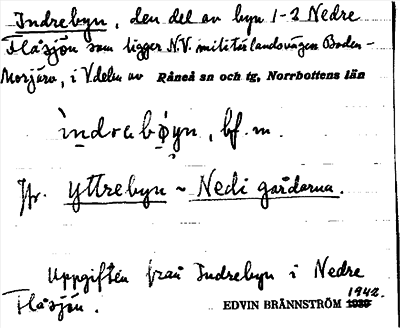 Indrebyn, den del av byn 1-2 Nedre
Flåsjön som ligger N.V. militärlandsvägen Boden-
Morjärv, i V.delen av Råneå sn och tg, Norrbottens län
ìndrebǿyn, bf. m.
Jfr. yttrebyn ~ Nedi gårdarna.
Uppgiften från Indrebyn i Nedre
Flåsjön.
EDVIN BRÄNNSTRÖM 1939 1942.